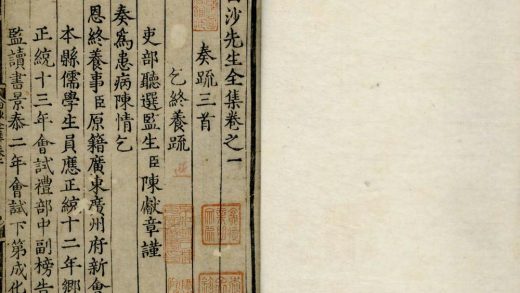 白沙先生全集卷之一
奏疏三首
乞終養疏
吏部聽選監生臣陳獻章謹
奏為患病陳情乞
恩終養事臣原籍廣東廣州府新會
本縣儒學生員應正統十二年鄉
正統十三年會試禮部中副榜告
監讀書景泰二年會試下第成化